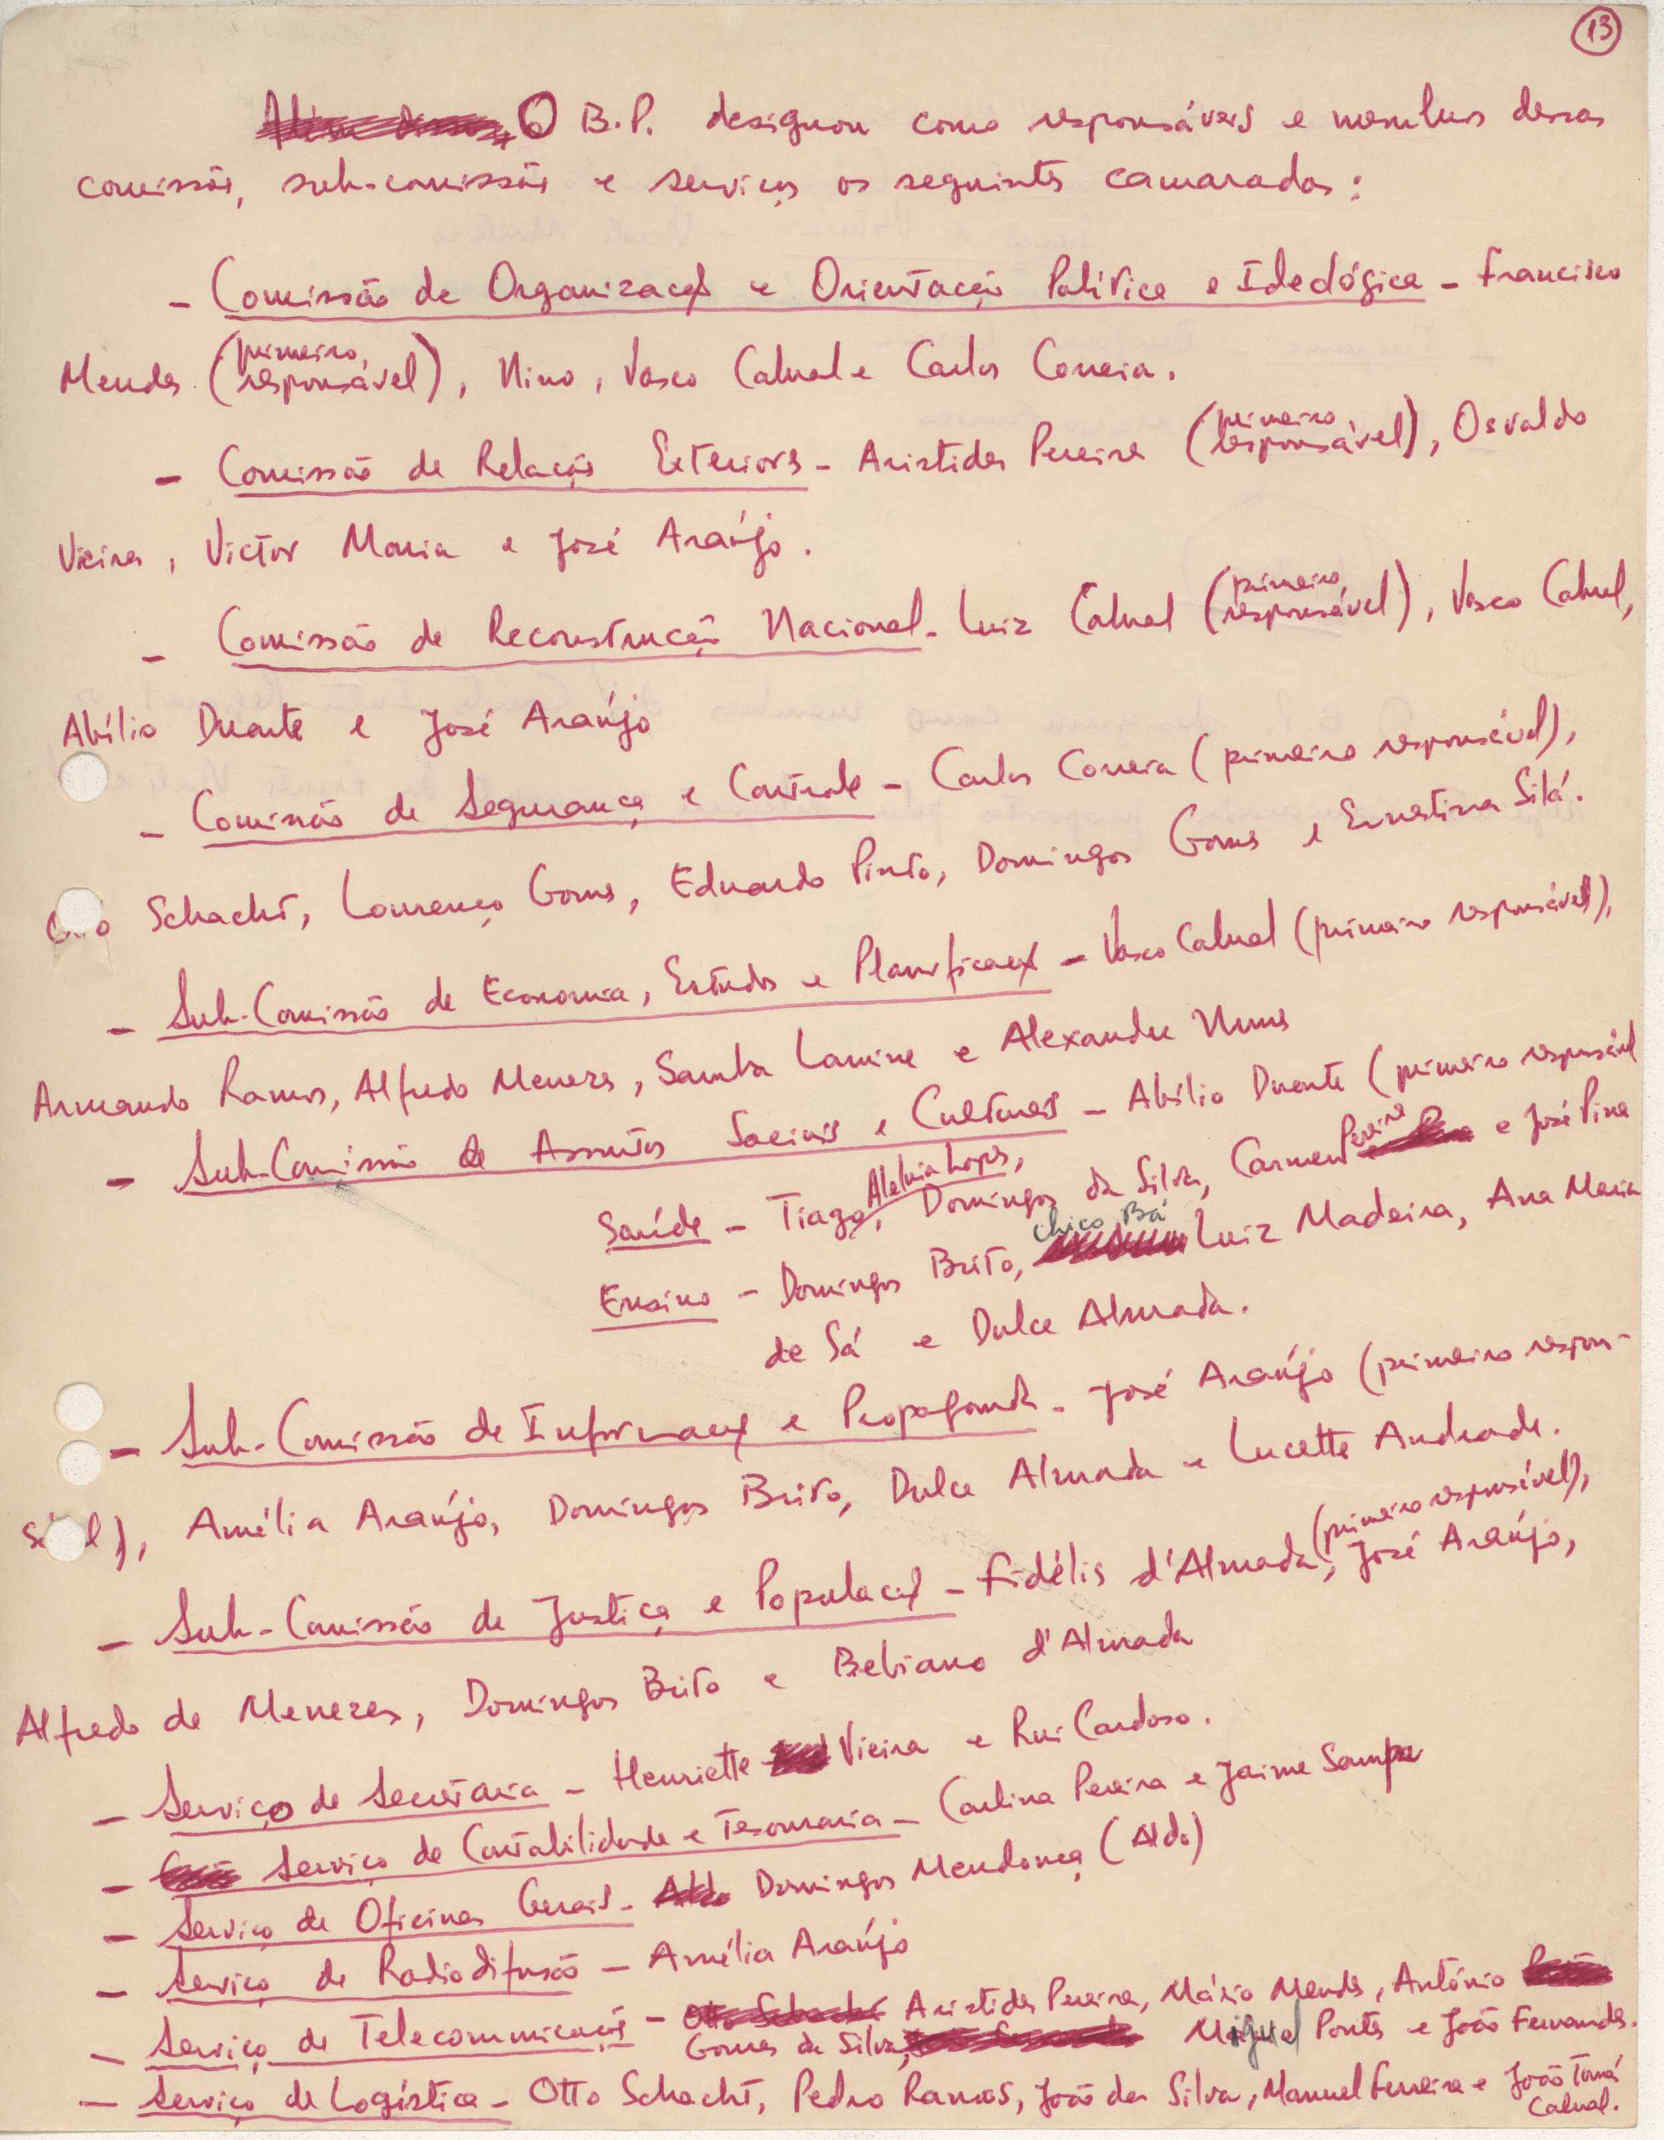 13
O B.P. designou como responsáveis e membros dessas
comissões, sub-comissões e serviços os seguintes camaradas:
- Comissão de Organização e Orientação Política e Ideológica - Francisco
Mendes (primeiro responsável), Nino, Vasco Cabral e Carlos Correia.
- Comissão de Relações Exteriores - Aristides Pereira (primeiro responsável), Osvaldo
Vieira, Victor Maria e José Araújo.
- Comissão de Reconstrução Nacional - Luiz Cabral (primeiro responsável), Vasco Cabral,
Abílio Duarte e José Araújo
- Comissão de Segurança e Controle - Carlos Correia (primeiro responsável),
Otto Schacht, Lourenço Gomes, Eduardo Pinto, Domingos Gomes e Ernestina Silá.
- Sub-Comissão de Economia, Estudos e Planificação - Vasco Cabral (primeiro responsável),
Armando Ramos, Alfredo Menezes, Samba Lamine e Alexandre Nunes
- Sub-Comissão de Assuntos Sociais e Culturais - Abílio Duarte (primeiro responsável
Saúde - Tiago Aleluia Lopes, Domingos da Silva, Carmen Pereira e José Pina
Ensino - Domingos Brito, Chico Bá Luiz Madeira, Ana Maria
de Sá e Dulce Almada.
- Sub-Comissão de Informação e Propaganda - José Araújo (primeiro respon-
sável), Amélia Araújo, Domingos Brito, Dulce Almada e Lucette Andrade.
- Sub-Comissão de Justiça e População - Fidélis d'Almada (primeiro responsável), José Araújo,
Alfredo de Menezes, Domingos Brito e Bebiano d'Almada
- Serviço de Secretaria - Henriette Vieira e Rui Cardoso.
- Serviço de Contabilidade e Tesouraria - Carlina Pereira e Jaime Sampa
- Serviço de Oficinas Gerais - Aldo Domingos Mendonça (Aldo)
- Serviço de Radiodifusão - Amélia Araújo
- Serviço de Telecomunicações - Otto Schacht Aristides Pereira, Mário Mendes, António
Gomes da Silva, Miguel Pontes e João Fernandes.
- Serviço de Logística - Otto Schacht, Pedro Ramos, João da Silva, Manuel Ferreira e João Tomá
Cabral.